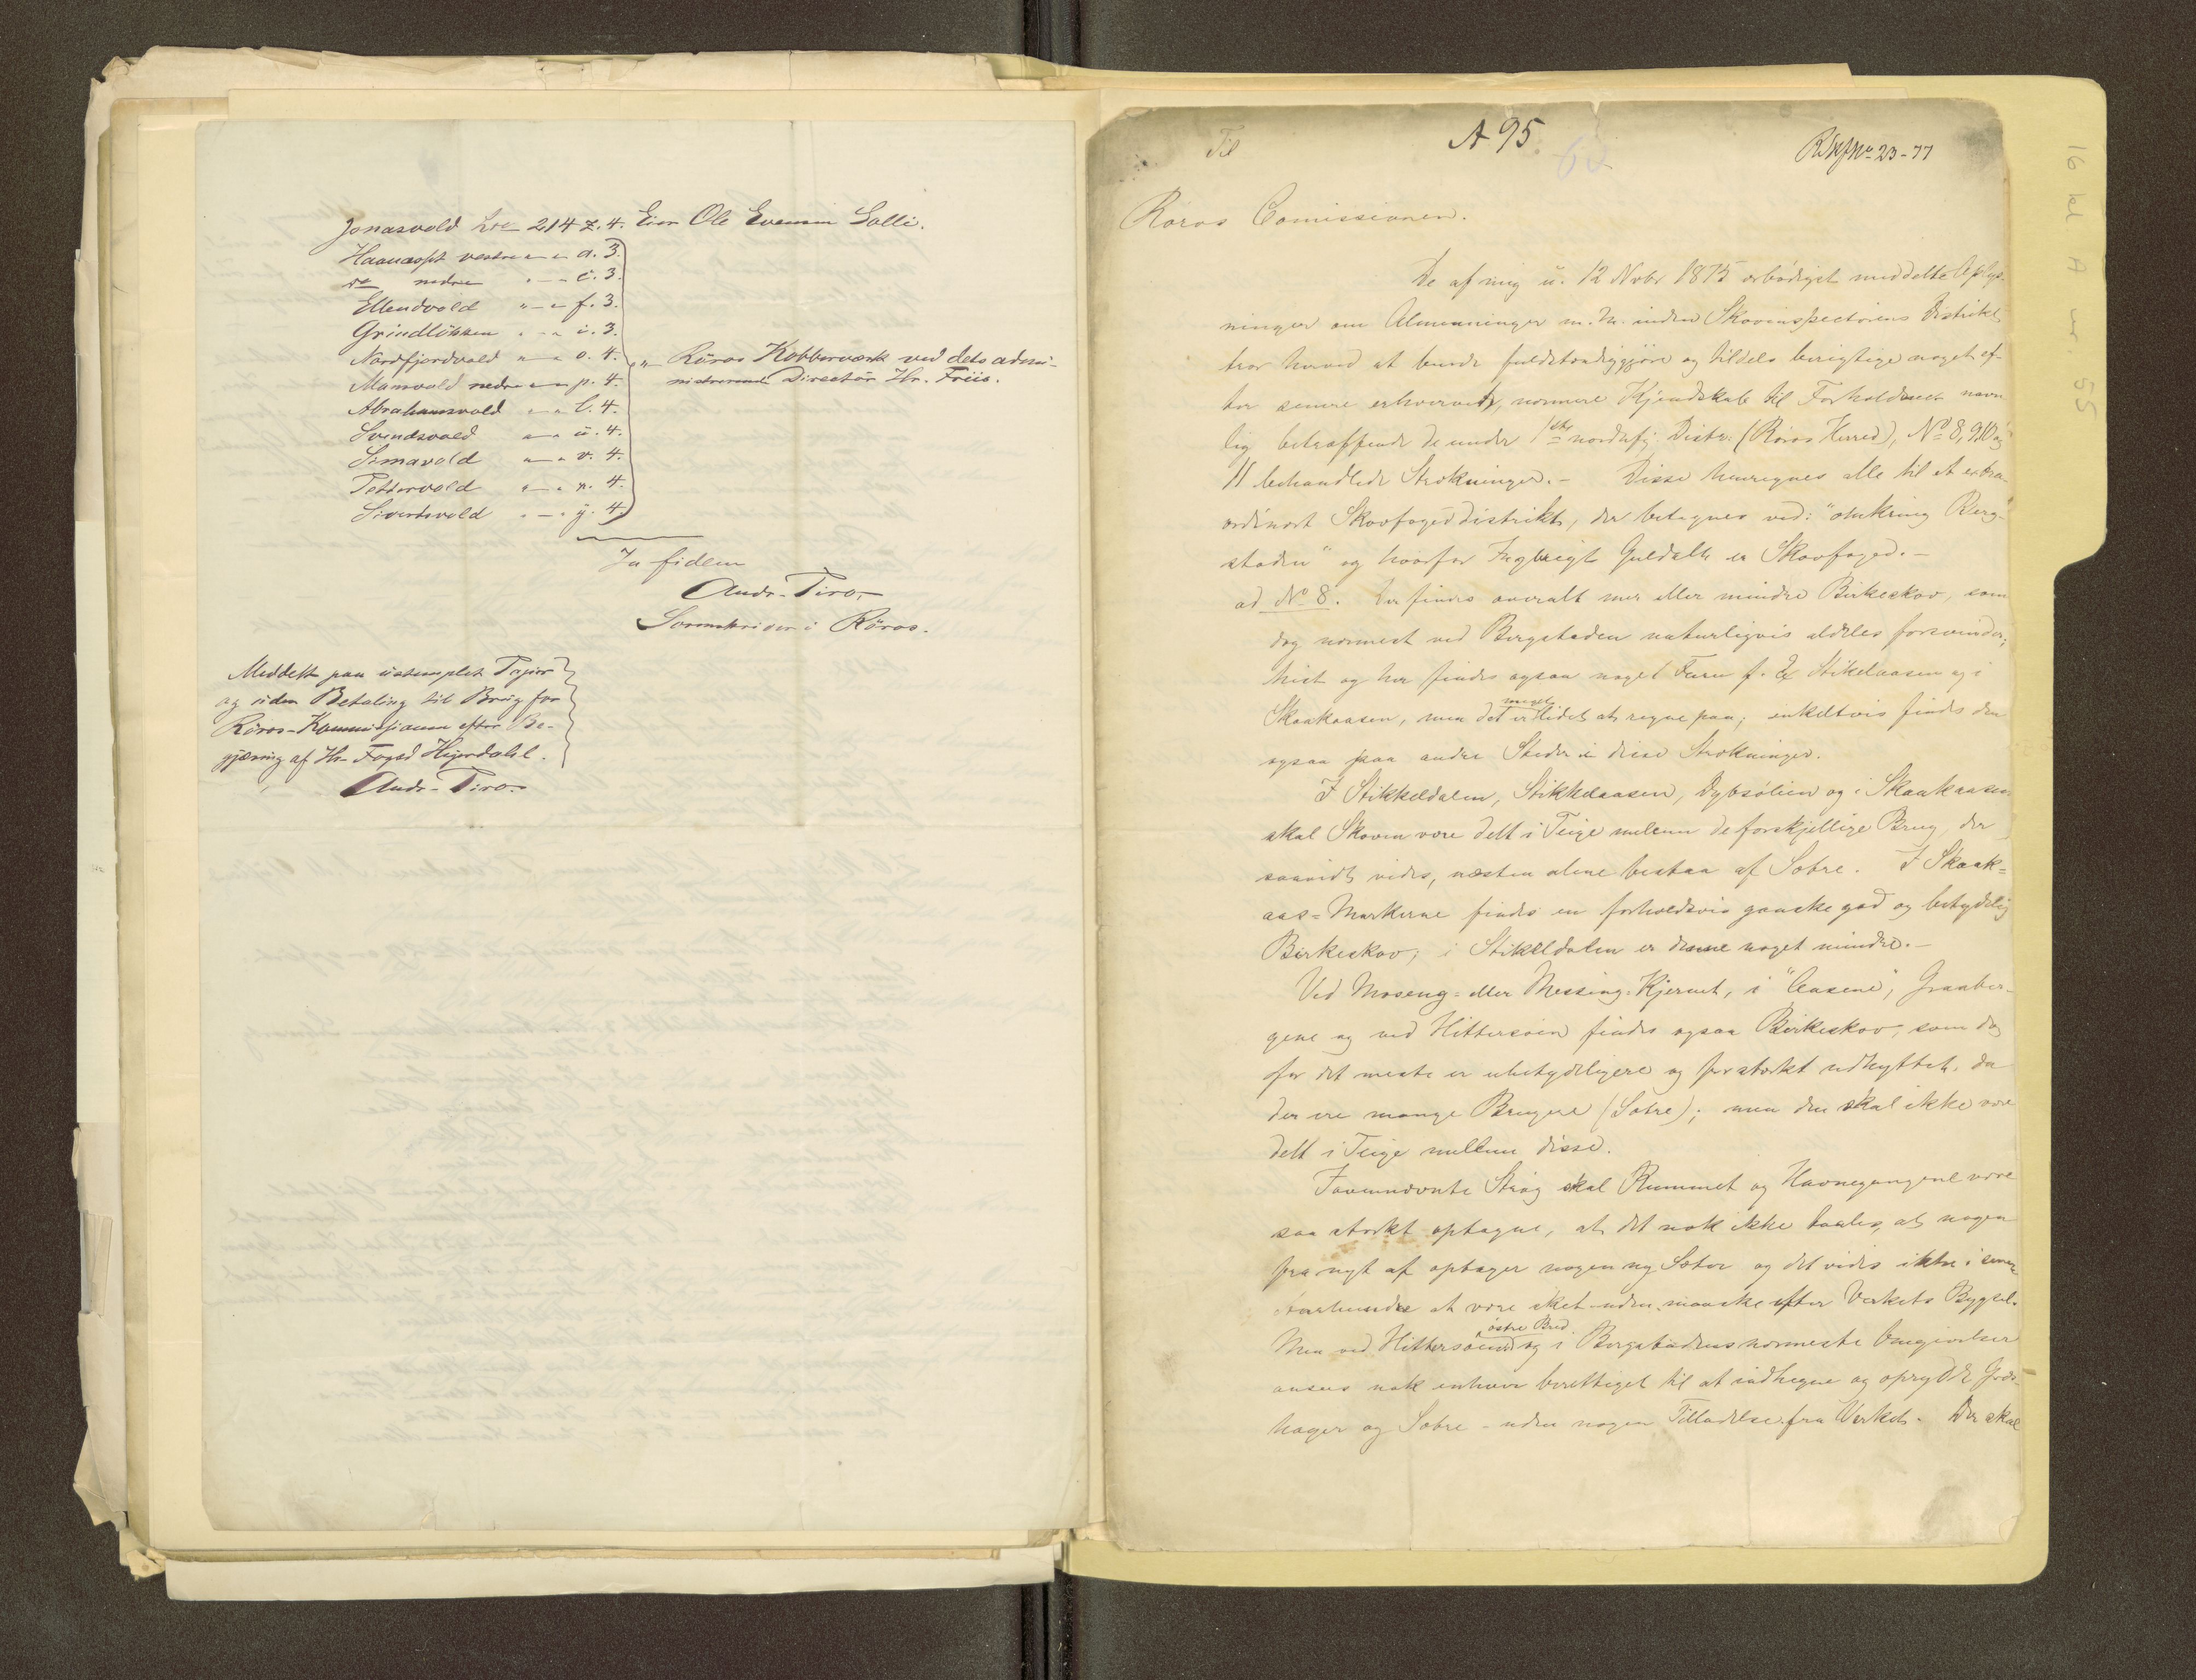 Jonasvold Lne 214 z. 4. Eier Ole Evensen Solli.
Haanæsset vestre " - " a. 3.
do nedre " - " c. 3.
Ellendvold " - " f. 3.
Grindløkken " - " i. 3.
Nordfjordvold " - " o. 4. " Röros Kobberværk ved dets admi-
Mamvold nedre " - " p. 4. nistrerende Directör Hr. Friis.
Abrahamsvold " - " l. 4.
Svendsvold " - " ü. 4.
Simavold " - " v. 4.
Pettervold " - " x. 4.
Sivertsvold " - " y. 4.
In fidem
Andr. Tiro.
Sorenskriver i Röros.
Meddelt paa ustemplet Papir
og uden Betaling til Brug for
Röros-Kommissionen efter Be-
gjæring af Hr. Foged Hijerdahl.
Andr. Tiro.
Til
A 95.
60
No 23-77
Röros Comissionen.
De af mig u. 12 Novbr 1875 ærbødigst meddelte Oplys-
ninger om Almenninger m. M. inden Skovinspectörens Distrikt
tror herved at burde fuldstændiggjöre og tildels berigtige noget ef-
ter senere erhvervet, nærmere Kjendskab til Forholdene navn
lig betræffende de under 1ste nordenfj. Distr. (Röros Herred), No 8, 9, 10 og
11 behandlede Strækninger. - Disse henregnes alle til et extra-
ordinært Skovfogeddistrikt, der betegnes ved: "omkring Berg-
staden" og hvorfor Ingbrigt Guldahl er Skovfoged. -
ad No 8. Der findes overalt mer eller mindre Birkeskov, som
dog nærmest ved Bergstaden naturligvis aldeles forsvinder;
hist og her findes ogsaa noget Furu f. Ex Stikelaasen og i
Skaakaasen, men det er meget lidet at regne paa; enkeltvis findes den
ogsaa paa andre Steder i disse Strækninger.
I Stikkeldalen, Stikkelaasen, Dybsölien og i Skaakaasen
skal Skoven være delt i Teige mellem de forskjellige Brug, der
saavidt vides, næsten alene bestaa af Sætre. I Skaak=
aas=Markerne findes en forholdsvis ganske god og betydelig
Birkeskov; i Stikeldalen er denne noget mindre. -
Ved Moseng= eller Messing-Kjernet, i "Aasene", Graaber-
gene og ved Hittersöien findes ogsaa Birkeskov, som dog
for det meste er ubetydeligere og for stærkt udhyttet, da
der ere mange Brugere (Sætre); men den skal ikke være
delt i Teige mellem disse.
Iovennævnte Strög skal Rummet og Havnegangene være
saa stærkt optagne, at det nok ikke taales, at nogen
fra nyt af optager nogen ny Sæter og det vides ikke i senere
Aarhundre at være sket uden maaske efter Verkets Bygsel.
Men ved Hittersöiens östre Bred og i Bergstadens nærmeste Omgivelser
ansees nok enhver berettiget til at indhegne og oprydde Græs-
hager og Sætre - uden nogen Tilladelse fra Verket. Der skal
16 kd A nr. 55